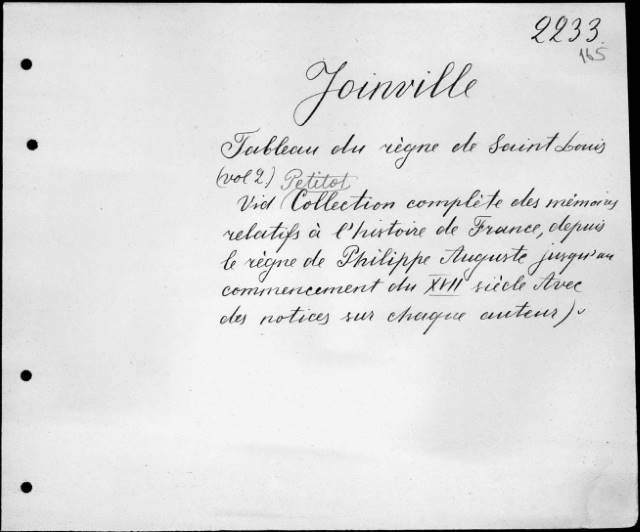 2233
165
Joinville
Tableau du règne de Saint Louis
(vol 2) Petitot
Vid (Collection complète des mémoires
relatifs à l'histoire de France, depuis
le règne de Philippe Auguste jusqu'au
commencement du XVII siècle Avec
des notices sur chaque auteur).